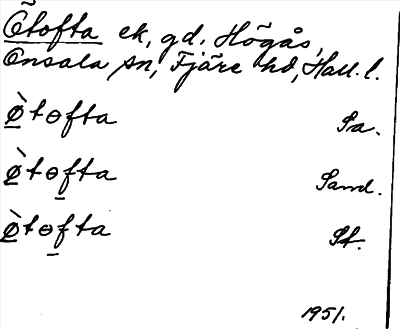 Õtofta ek, gd. Högås,
Onsala sn, Fjäre hd, Hall. l.
ø̀tɵfta Sa.
ø̀tɵfta Sand.
ø̀tɵfta St.
1951.